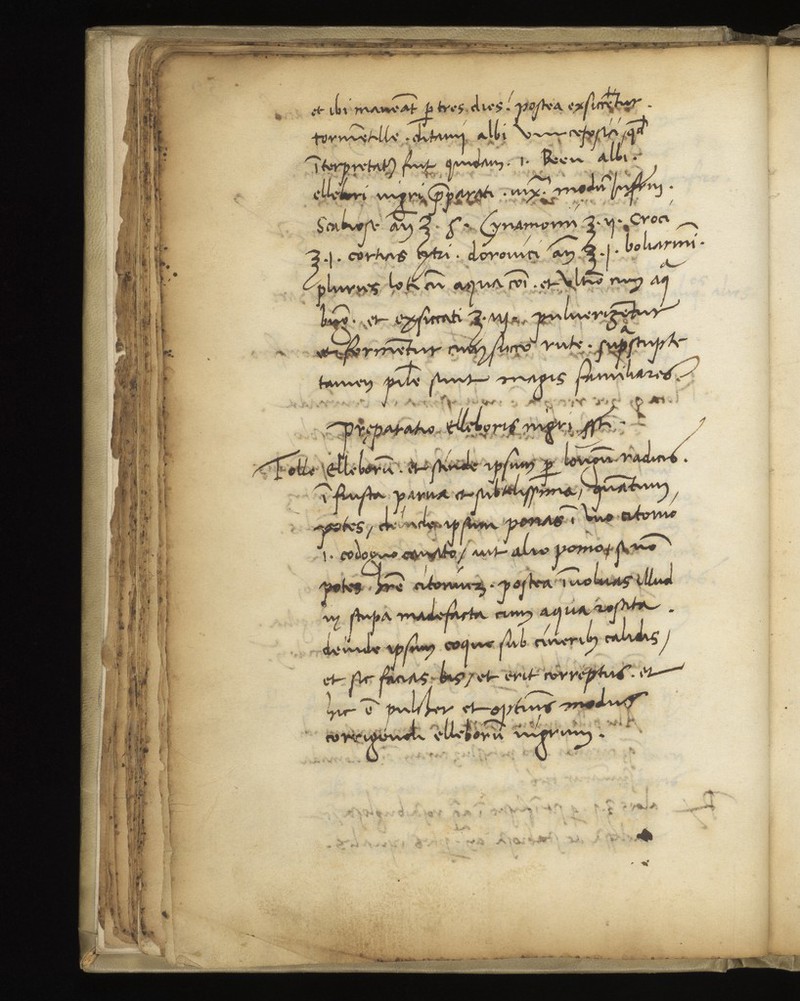 et ibi maneāt ꝑ tres dies. postea exsiccētur.
tormētille. ditami albi
īterpretatꝰ fuit quidam .i. Been albi.
ellebori nigri p̄parati modū
Scabiose añ ʒ. Cynamomi ʒ.ij. Croci
ʒ.j. corticis citri. doronici añ ʒ.j. boliarmī.
pluries loti cū aqua et cum aq̄
et exsiccati ʒ. pulverizentur
et formētur cum succo rute. supᵃscripte
tamen pil̄e sunt magis familiares
Preparatio Ellebori nigri
Tolle Elleborū. et scinde ipsum ꝑ longū radicis.
ī frusta parva et subtilissima, quātum
potes, deinde ipsum ponas ī uno citonio
.i. codogno cavato, aut alio pomo, si nō
potes h̄re postea īvolvas illud
in stupa madefacta cum aqua rosata.
deinde ipsum coque sub cineribꝫ calidis,
et sic facias bis, et erit correptus. et
hic ē pulcher et optimꝰ modus
corrigendi elleborū nigrum.